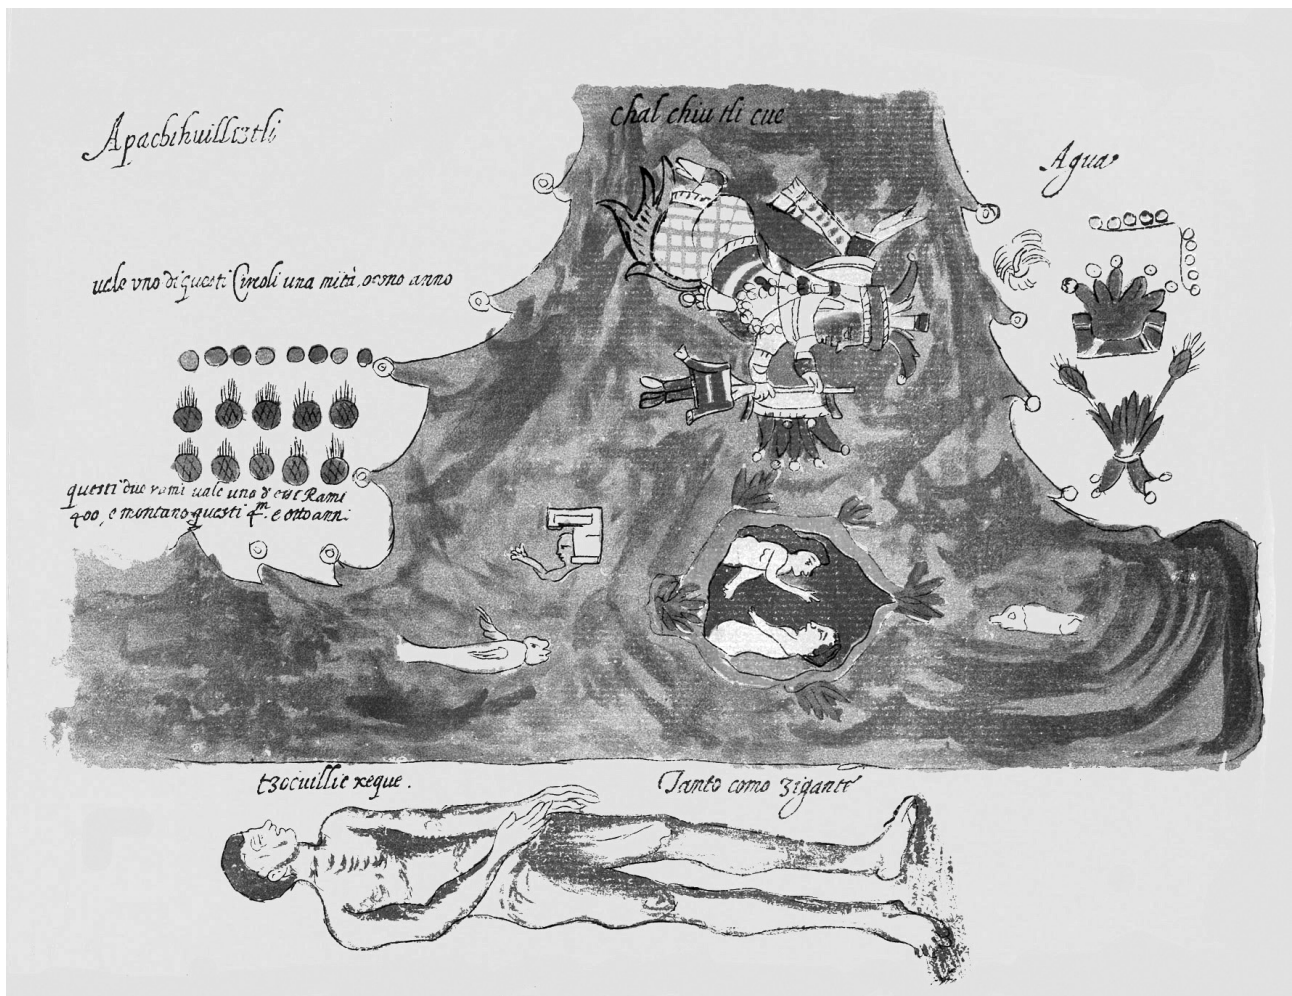 chal chiu tli cue
Apachihuilliztli
Agua
uale vno di questi Circoli una mità, o uno anno
questi due rami uale uno d' essi Rami
400, e montano questi 4m. e otto anni
tzocuillic xeque.
Tanto como zigante